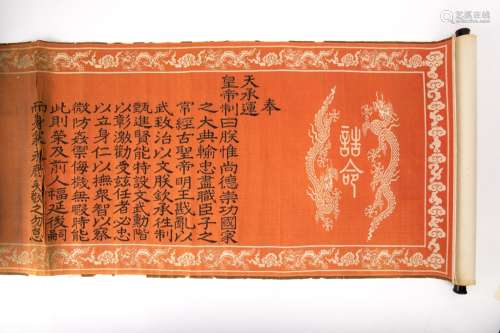 誥命
奉
天承運
皇帝制曰朕惟尚德崇功國家
之大典輸忠盡職臣子之
常經古聖帝明王戡亂以
武致治以文朕欽承往制
甄進賢能特設文武勳階
以彰激勸受茲任者必忠
以立身仁以撫衆智以察
微防姦禦侮機無暇時能
此則榮及前人福延後嗣
而身家永康矣敬之勿怠
艺狐在线